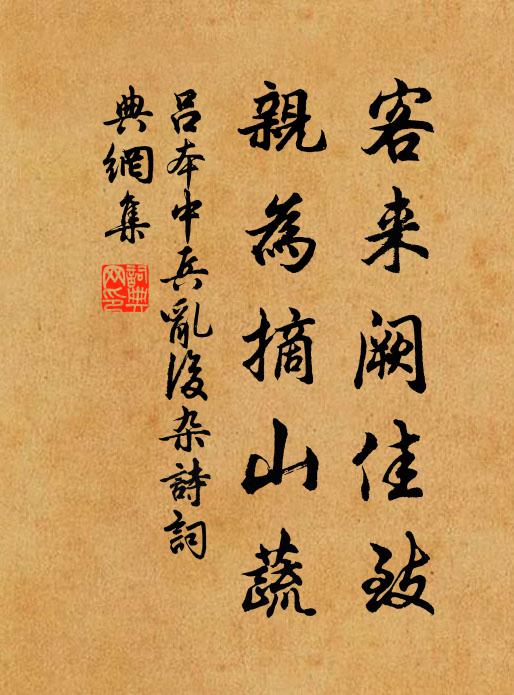 客来阙佳致
親為摘山蔬
吕本中兵亂後杂詩詞
典網集
詞典网印